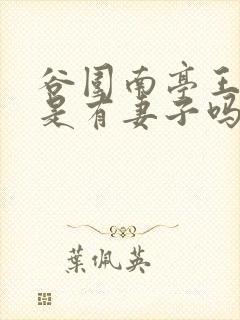 谷围南亭王
是有妻子吗
葉佩英